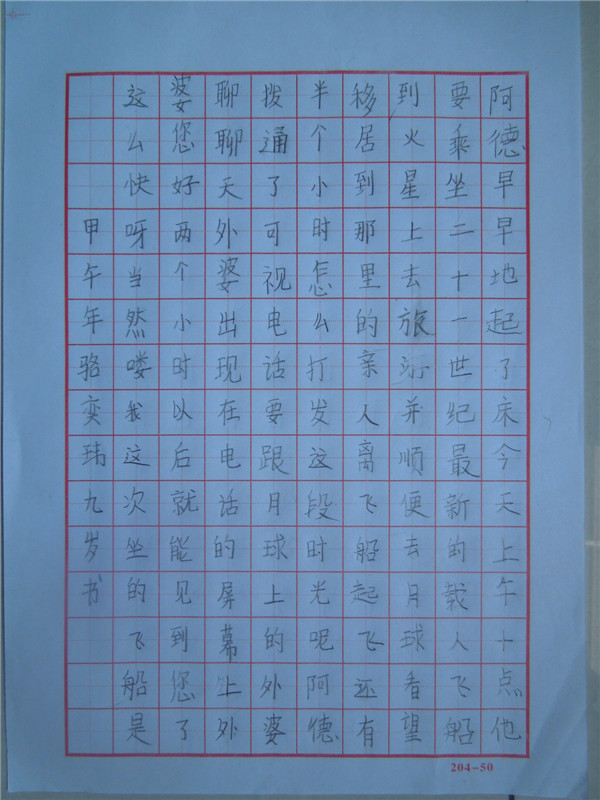 阿德早早地起了床今天上午十点他
要乘坐二十一世纪最新的载人飞船
到火星上去旅游并顺便去月球看望
移居到那里的亲人离飞船起飞还有
半个小时怎么打发这段时光呢阿德
拨通了可视电话要跟月球上的外婆
聊聊天外婆出现在电话的屏幕上外
婆您好两个小时以后就能见到您了
这么快呀当然喽我这次坐的飞船是
甲午年骆奕玮九岁书
204-50